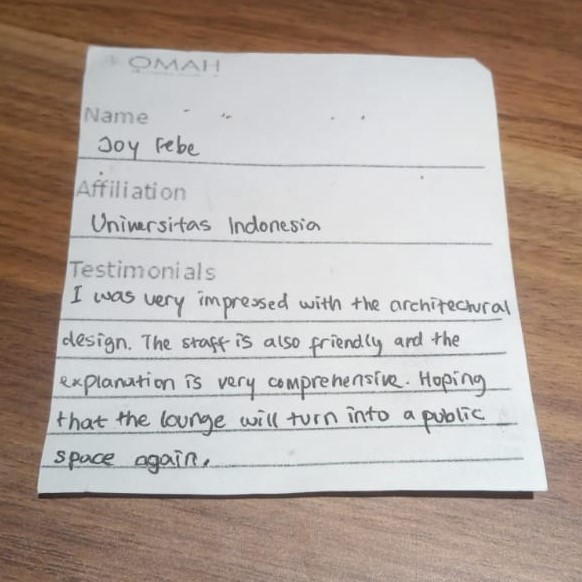 OMAH
Name
Joy Febe
Affiliation
Universitas Indonesia
Testimonials
I was very impressed with the architectural
design. The staff is also friendly and the
explanation is very comprehensive. Hoping
that the lounge will turn into a public
space again.